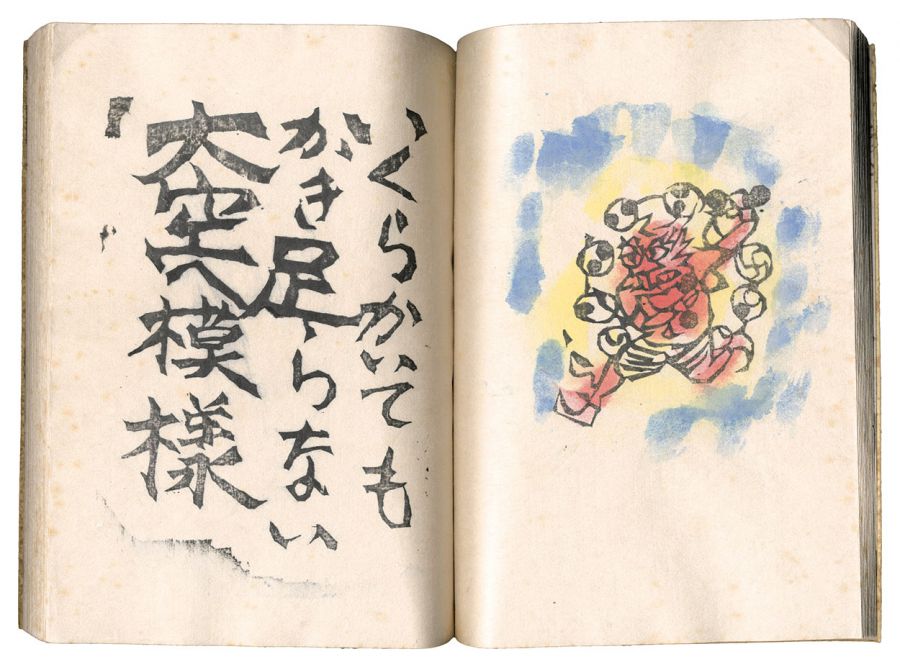 いくらかいても
かき足らない
大空模様